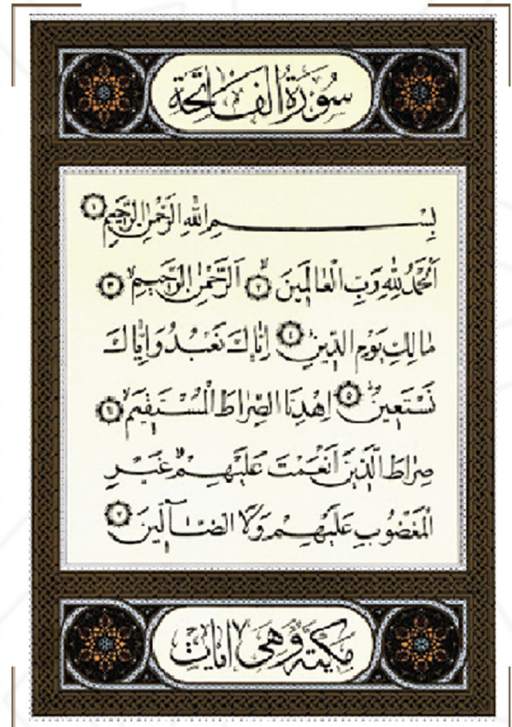 سُورَةُ الْفَاتِحَةِ
بِسْمِ اللّٰهِ الرَّحْمٰنِ الرَّحِيمِ ١
اَلْحَمْدُ لِلّٰهِ رَبِّ الْعَالَمِينَ ٢ اَلرَّحْمٰنِ الرَّحِيمِ ٣
مَالِكِ يَوْمِ الدِّينِ ٤ اِيَّاكَ نَعْبُدُ وَاِيَّاكَ
نَسْتَعِينُ ٥ اِهْدِنَا الصِّرَاطَ الْمُسْتَقِيمَ ٦
صِرَاطَ الَّذِينَ اَنْعَمْتَ عَلَيْهِمْ غَيْرِ
الْمَغْضُوبِ عَلَيْهِمْ وَلَا الضَّالِّينَ ٧
مَكِّيَّةٌ وَهِيَ ٧ اٰيَاتٍ